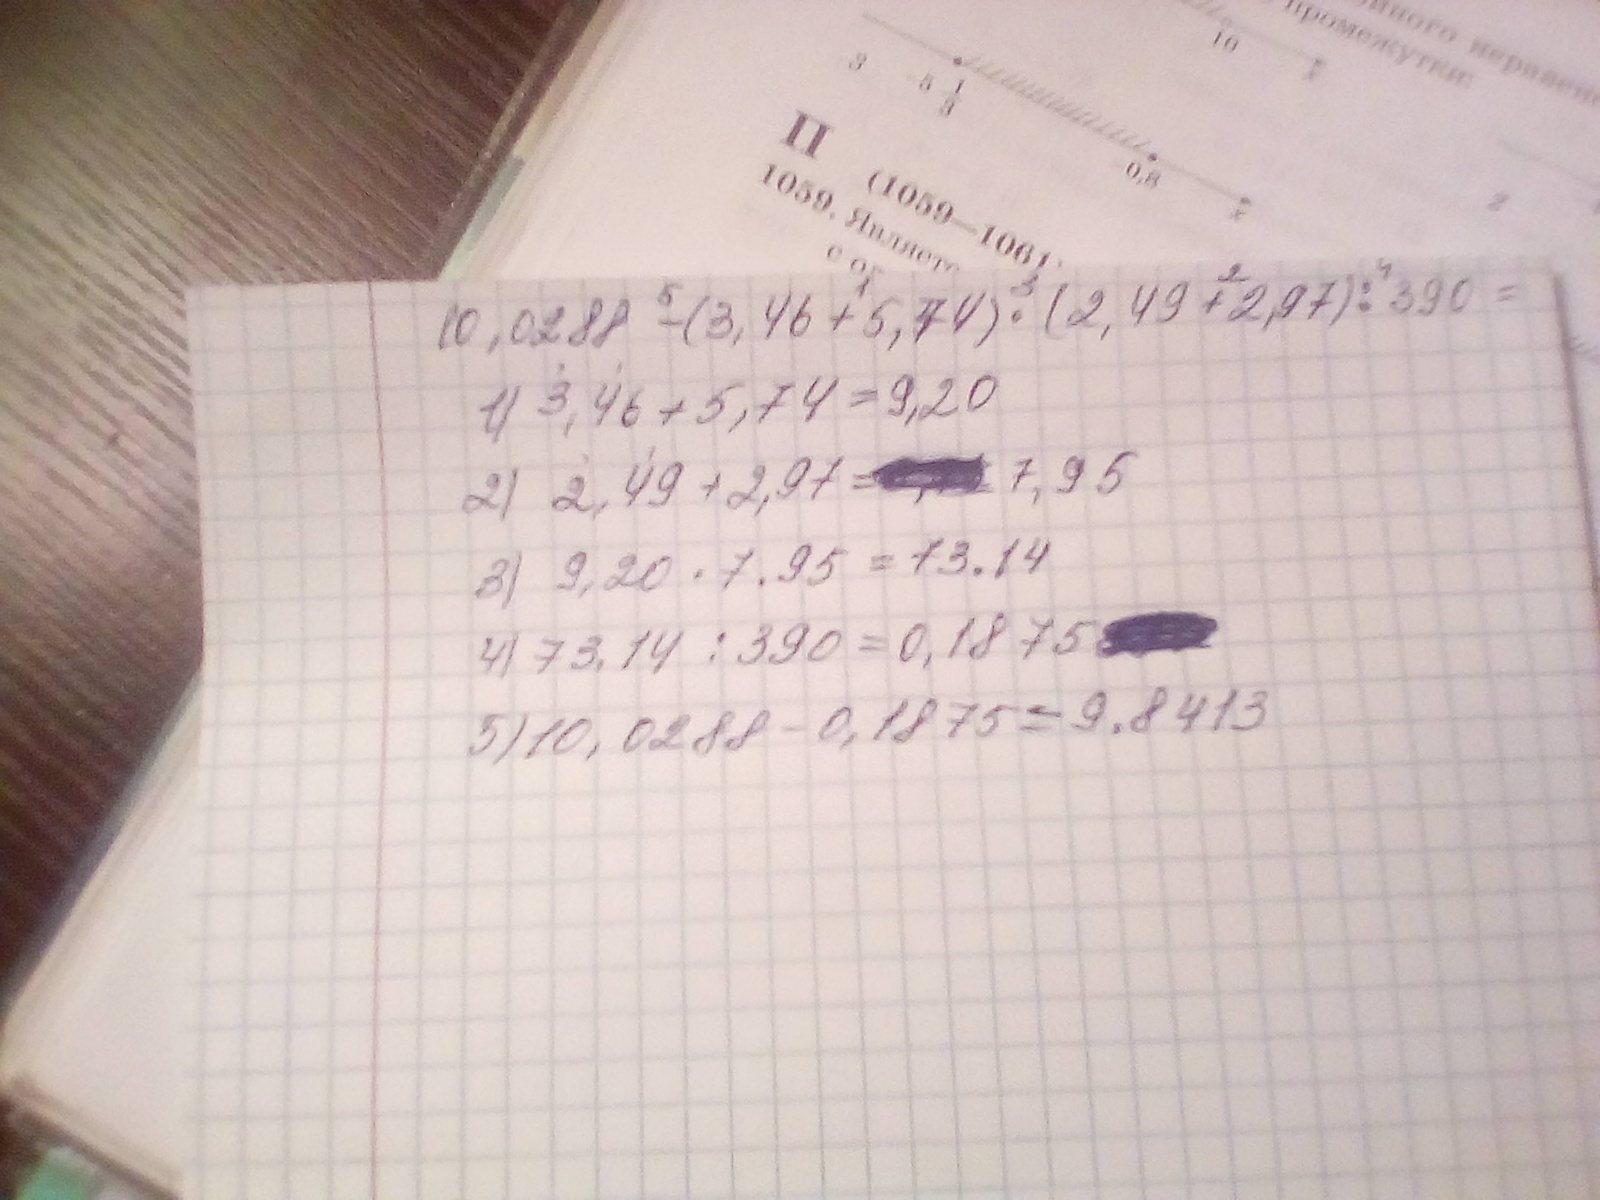 омного неравенс
промежутки:
10
x
3
-5 1/3
-0,8
x
2
II
(1059—1061)
1059. Являетс
с об
10,0288 - (3,46 + 5,74) · (2,49 + 2,97) : 390 =
1) 3,46 + 5,74 = 9,20
2) 2,49 + 2,97 = 7,95
3) 9,20 · 7.95 = 73.14
4) 73.14 : 390 = 0,1875
5) 10,0288 - 0,1875 = 9.8413